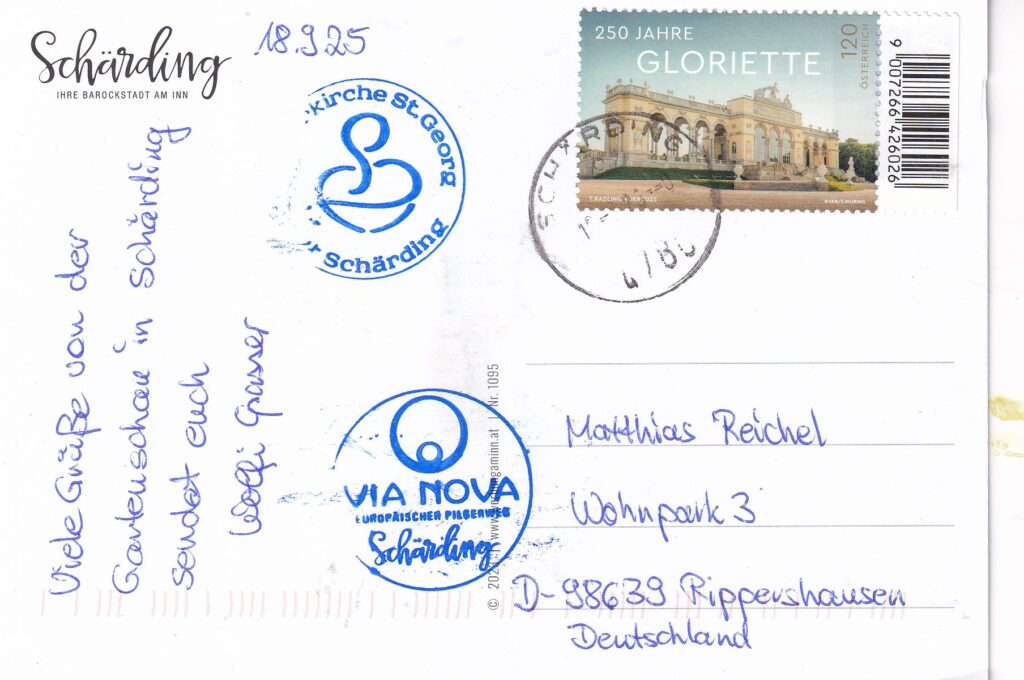 Schärding
IHRE BAROCKSTADT AM INN
18.9.25
250 JAHRE
GLORIETTE
120
ÖSTERREICH
T. RADLING
2025
9 007266 426026
kirche St. Georg
Schärding
SCHÄRDING
Viele Grüße von der
Gartenschau in Schärding
sendet euch
Wolfi Grasser
VIA NOVA
EUROPÄISCHER PILGERWEG
Schärding
Nr. 1095
Matthias Reichel
Wohnpark 3
D-98639 Rippershausen
Deutschland